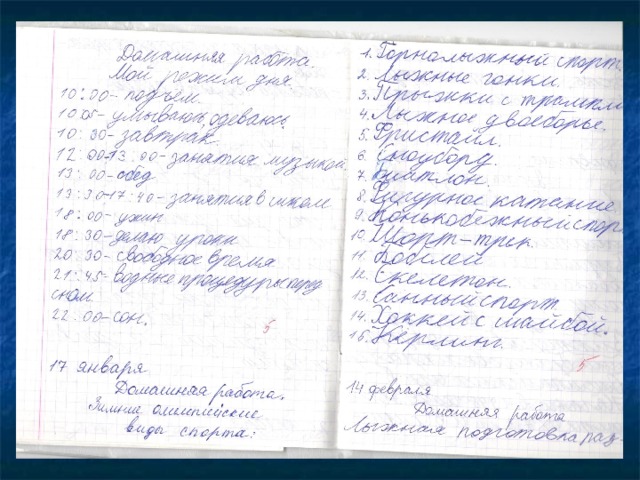 Домашняя работа.
Мой режим дня.
10:00- подъём.
10:05- умываюсь, одеваюсь.
10:30- завтрак.
12:00-13:00- занятия музыкой.
13:00- обед
13:30-17:40- занятия в школе
18:00- ужин
18:30- делаю уроки
20:30- свободное время
21:45- водные процедуры перед
сном
22:00- сон.
5
17 января
Домашняя работа.
Зимние олимпийские
виды спорта:
1. Горнолыжный спорт.
2. Лыжные гонки.
3. Прыжки с трампли
4. Лыжное двоеборье.
5. Фристайл.
6. Сноуборд.
7. Биатлон.
8. Фигурное катание
9. Конькобежный спор
10. Шорт-трек
11. Бобслей
12. Скелетон.
13. Санный спорт
14. Хоккей с шайбой.
15. Кёрлинг.
5
14 февраля
Домашняя работа
Лыжная подготовка раз-